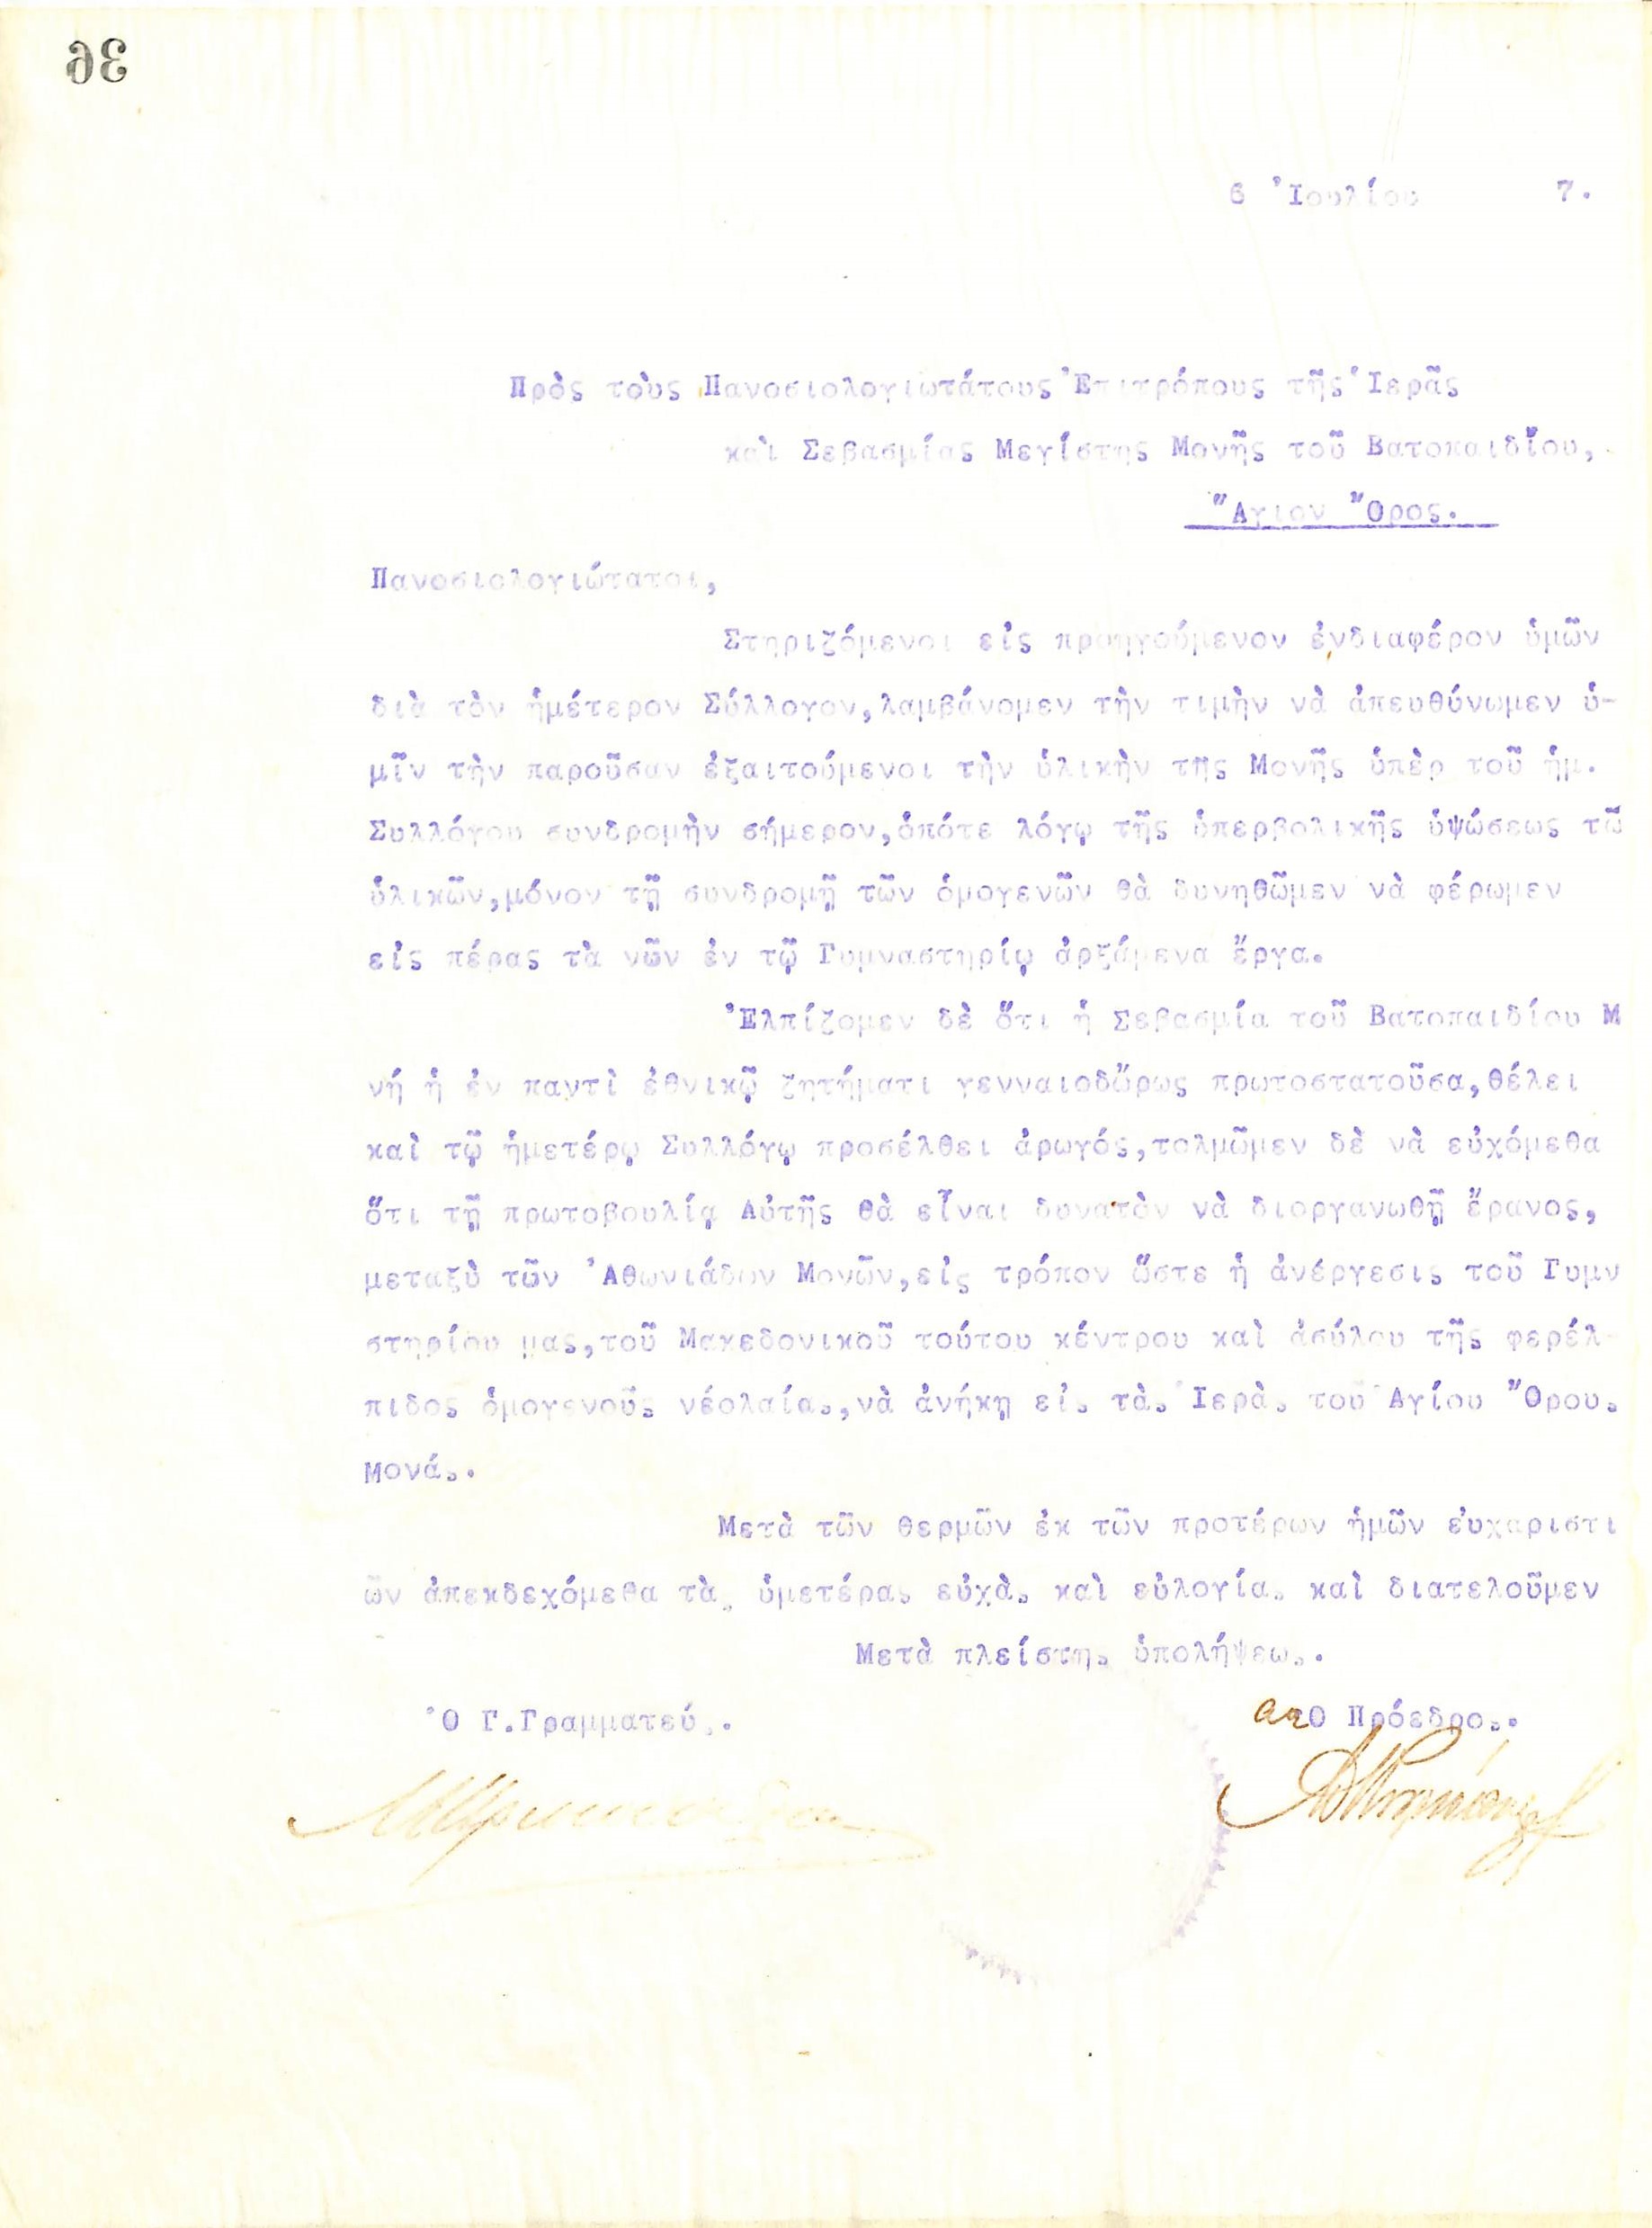 36
6 Ἰουλίου 7.
Πρὸς τοὺς Πανοσιολογιωτάτους Ἐπιτρόπους τῆς Ἱερᾶς
καὶ Σεβασμίας Μεγίστης Μονῆς τοῦ Βατοπαιδίου,
Ἅγιον Ὄρος.
Πανοσιολογιώτατοι,
Στηριζόμενοι εἰς προηγούμενον ἐνδιαφέρον ὑμῶν
διὰ τὸν ἡμέτερον Σύλλογον,λαμβάνομεν τὴν τιμὴν νὰ ἀπευθύνωμεν ὑ-
μῖν τὴν παροῦσαν ἐξαιτούμενοι τὴν ὑλικὴν τῆς Μονῆς ὑπὲρ τοῦ ἡμ.
Συλλόγου συνδρομὴν σήμερον,ὁπότε λόγῳ τῆς ὑπερβολικῆς ὑψώσεως τῶ
ὑλικῶν,μόνον τῇ συνδρομῇ τῶν ὁμογενῶν θὰ δυνηθῶμεν νὰ φέρωμεν
εἰς πέρας τὰ νῦν ἐν τῷ Γυμναστηρίῳ ἀρξάμενα ἔργα.
Ἐλπίζομεν δὲ ὅτι ἡ Σεβασμία τοῦ Βατοπαιδίου Μ
νή ἡ ἐν παντὶ ἐθνικῷ ζητήματι γενναιοδὥρως πρωτοστατοῦσα,θέλει
καὶ τῷ ἡμετέρῳ Συλλόγῳ προσέλθει ἀρωγός,τολμῶμεν δὲ νὰ εὐχόμεθα
ὅτι τῇ πρωτοβουλίᾳ Αὐτῆς θὰ εἶναι δυνατὸν νὰ διοργανωθῇ ἔρανος,
μεταξὺ τῶν Ἀθωνιάδων Μονῶν,εἰς τρόπον ὥστε ἡ ἀνέργεσις τοῦ Γυμν
στηρίου μας,τοῦ Μακεδονικοῦ τούτου κέντρου καὶ ἀσύλου τῆς φερέλ-
πιδος ὁμογενοῦς νέολαίας,νὰ ἀνήκῃ εἰς τὰς Ἱερὰς τοῦ Ἁγίου Ὄρους
Μονάς.
Μετὰ τῶν θερμῶν ἐκ τῶν προτέρων ἡμῶν εὐχαριστι
ῶν ἀπεκδεχόμεθα τὰς ὑμετέρας εὐχὰς καὶ εὐλογίας καὶ διατελοῦμεν
Μετὰ πλείστης ὑπολήψεως.
Ὁ Γ.Γραμματεύς. Ὁ Πρόεδρος.